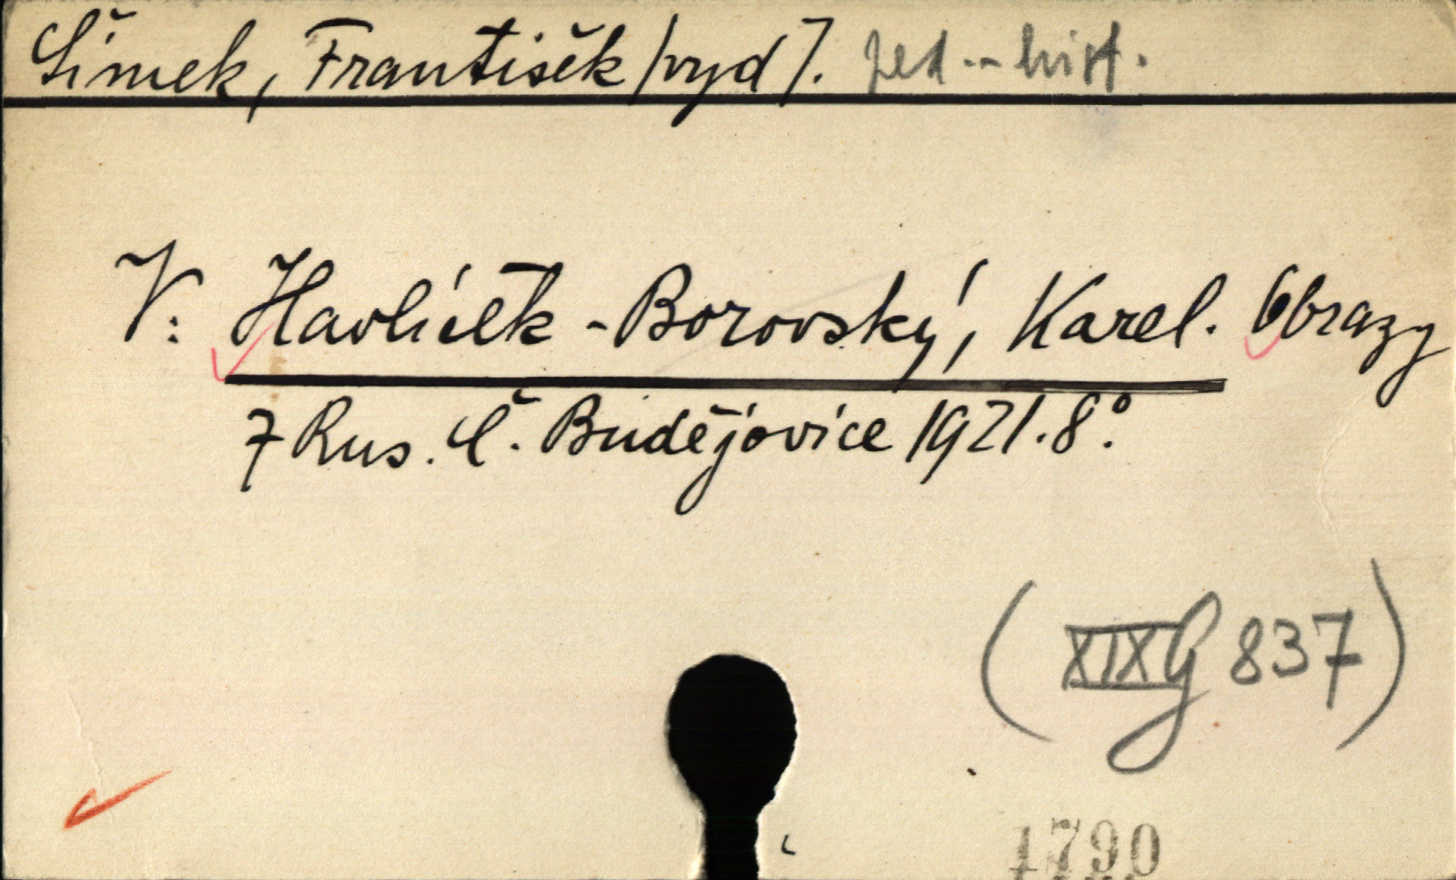 Šimek, František /vyd/. ped.-hist.
V: Havlíček-Borovský, Karel. Obrazy
z Rus. Č. Budějovice 1921. 8°.
(XIX G 837)
1790